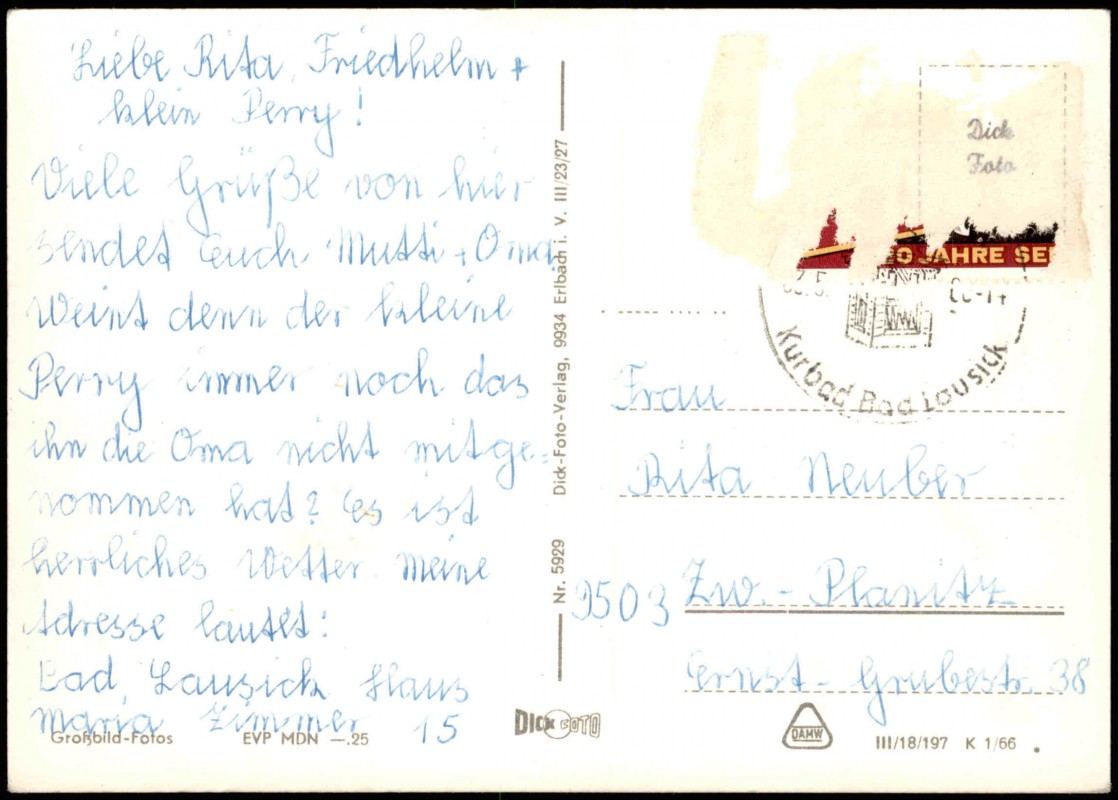 Liebe Rita, Friedhelm +
klein Perry!
Viele Grüße von hier
sendet euch Mutti + Oma
Weint denn der kleine
Perry immer noch das
ihn die Oma nicht mitge=
nommen hat? Es ist
herrliches Wetter. Meine
Adresse lautet:
Bad Lausick Haus
Maria Zimmer 15
Großbild-Fotos EVP MDN —.25
Nr. 5929 Dick-Foto-Verlag, 9934 Erlbach i. V. III/23/27
DICK FOTO
Dick
Foto
0 JAHRE SE
Kurbad Bad Lausick
Frau
Rita Neuber
9503 Zw.-Planitz
Ernst-Grubestr. 38
DAMW
III/18/197 K 1/66